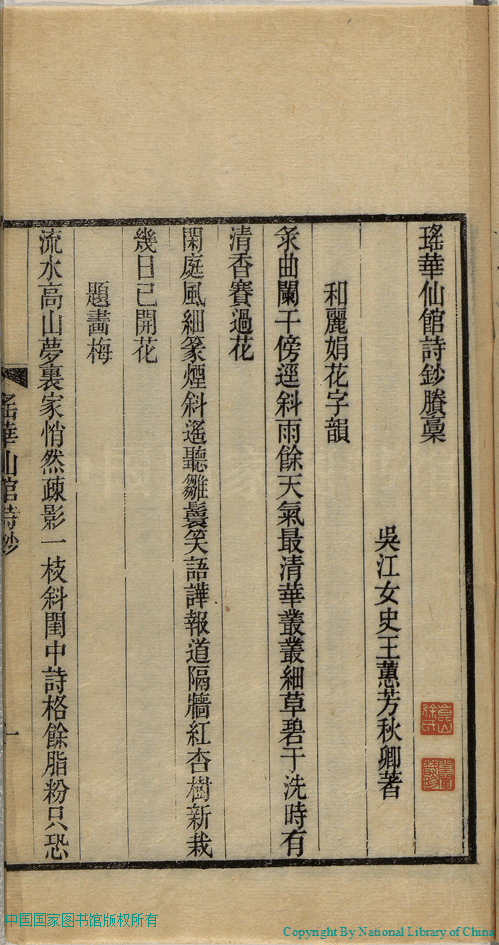 瑤華仙館詩鈔賸稾
吳江女史王蕙芳秋卿著
和麗娟花字韻
曲闌干傍逕斜雨餘天氣最清華叢叢細草碧于洗時有
清香賽過花
閑庭風細篆煙斜遙聽雛鬟笑語譁報道隔牆紅杏樹新栽
幾日已開花
題畫梅
流水高山夢裏家悄然疎影一枝斜閨中詩格餘脂粉只恐
瑤華仙館詩鈔
一
中国国家图书馆版权所有
Copyright By National Library of China